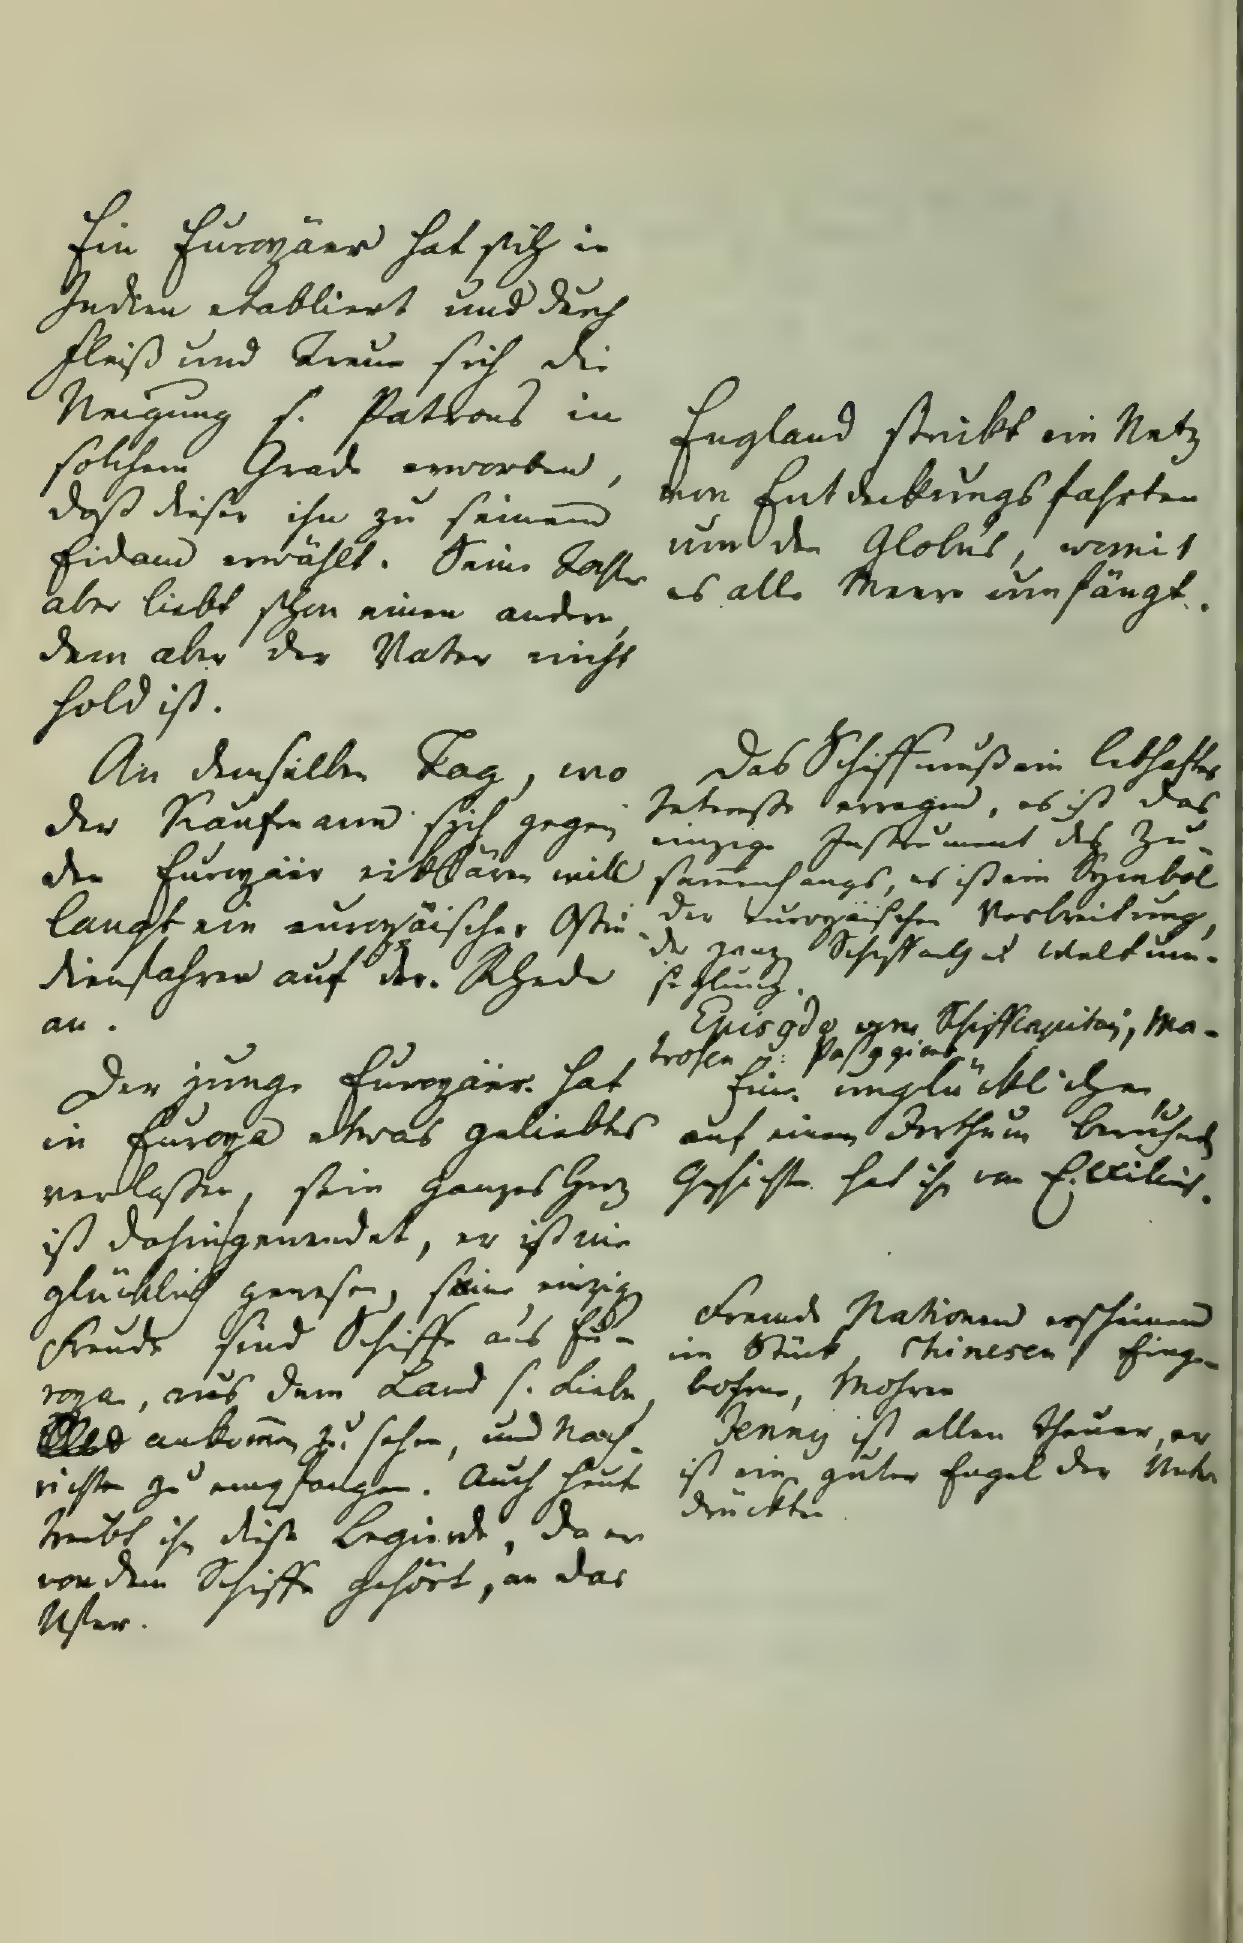 Ein Europäer hat sich in
Indien etabliert und durch
Fleiß und Treue sich die
Neigung s. Patrons in
solchem Grade erworben,
daß dieser ihn zu seinem
Eidam erwählt. Seine Tochter
aber liebt schon einen andern,
dem aber der Vater nicht
hold ist.
An demselben Tag, wo
der Kaufmann sich gegen
den Europäer erklären will
langt ein europäischer Ostin-
dienfahrer auf der Rhede
an.
Der junge Europäer hat
in Europa etwas geliebtes
verlassen, sein ganzes Herz
ist dahin gewendet, er ist nie
glücklich gewesen, seine einzige
Freude sind Schiffe aus Eu-
ropa, aus dem Land s. Liebe,
ankommen zu sehen, und Nach-
richten zu empfangen. Auch heut
treibt ihn diese Begierde, da er
von dem Schiffe gehört, an das
Ufer.
England strickt ein Netz
von Entdeckungsfahrten
um den Globus, womit
es alle Meere umfängt.
Das Schiff muß ein lebhaftes
Interesse erregen, es ist das
einzige Instrument des Zu-
sammenhangs, es ist ein Symbol
der europäischen Verbreitung,
der ganzen Schiffahrt und Weltum-
seglung.
Episode vom Schiffcapitain, Ma-
trosen u: Passagieren
Eine unglückliche
auf einem Irrthum beruhende
Geschichte hat ihn von exiliert.
Fremde Nationen erscheinen
im Stück, Chinesen, Einge-
bohrne, Mohren
Jenny ist allen theuer, er
ist ein guter Engel der Unter
drückten